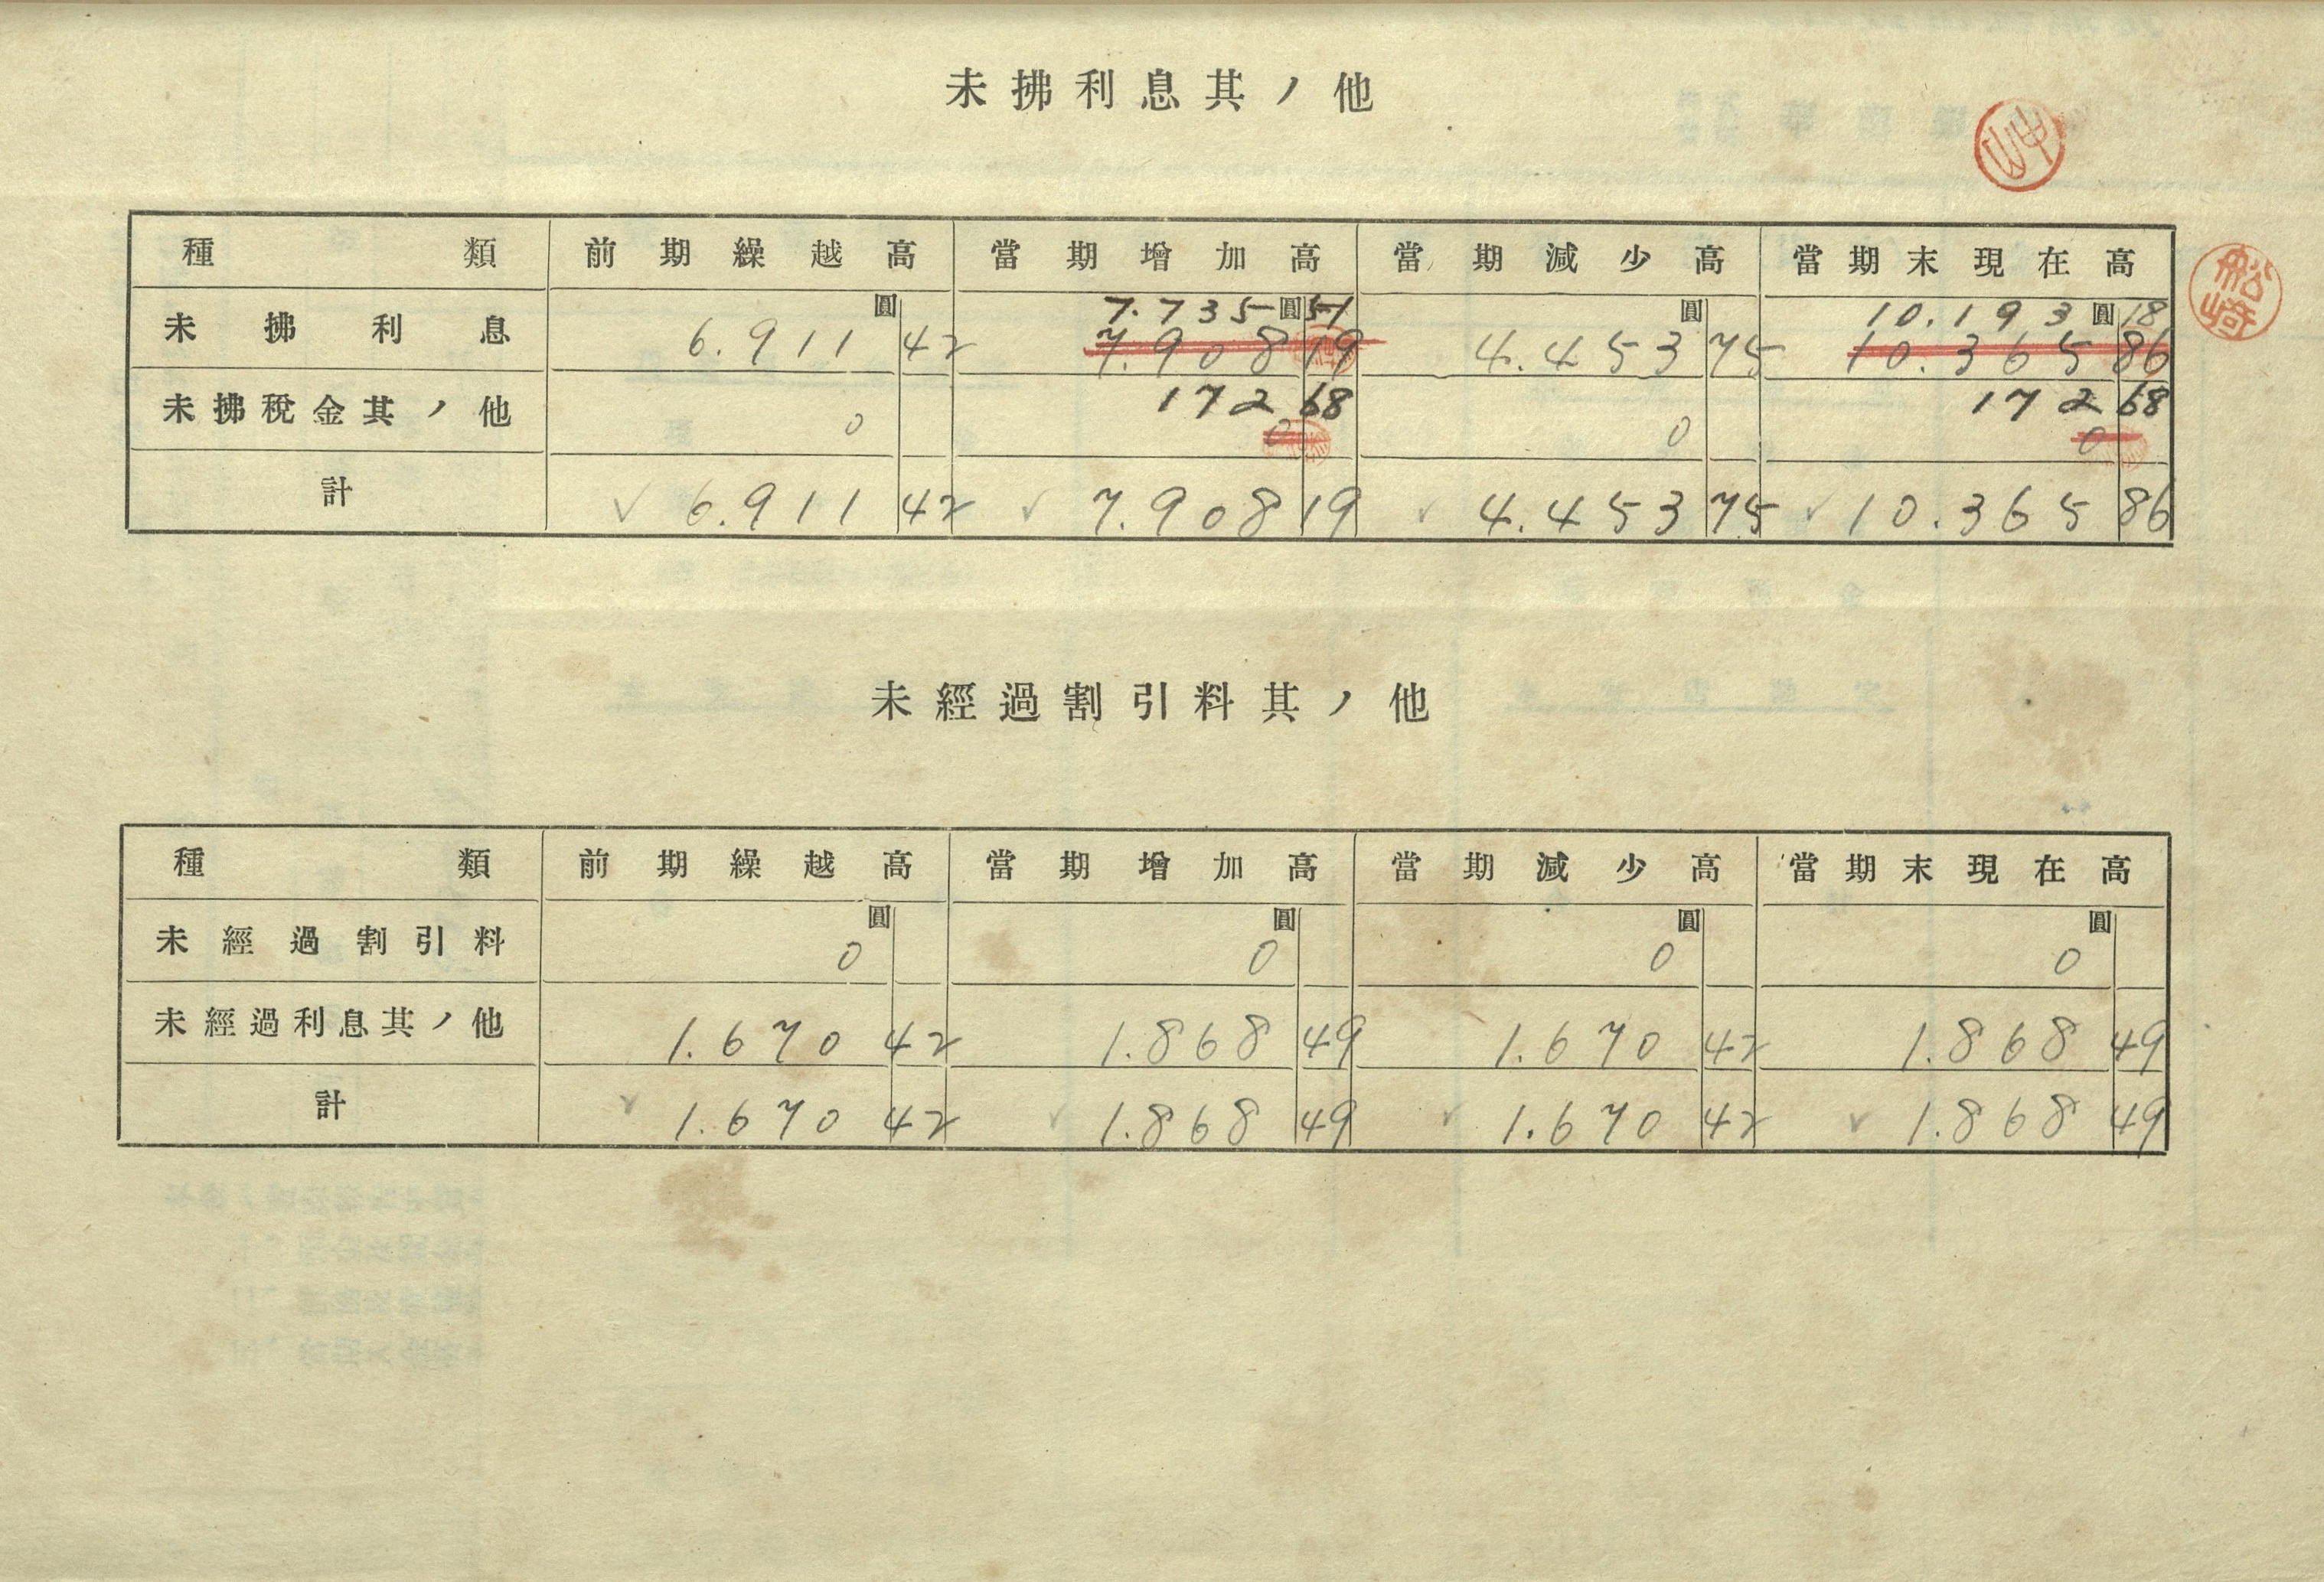 未拂利息其ノ他
種類 前期繰越高 當期增加高 當期減少高 當期末現在高
圓 7.735 圓 51 圓 10.193 圓 18
未拂利息 6.911 42 7.908 19 4.453 75 10.365 86
172 68 172 68
未拂稅金其ノ他 0 0 0 0
計 6.911 42 7.908 19 4.453 75 10.365 86
船崎
未經過割引料其ノ他
種類 前期繰越高 當期增加高 當期減少高 當期末現在高
圓 圓 圓 圓
未經過割引料 0 0 0 0
未經過利息其ノ他 1.670 42 1.868 49 1.670 42 1.868 49
計 1.670 42 1.868 49 1.670 42 1.868 49